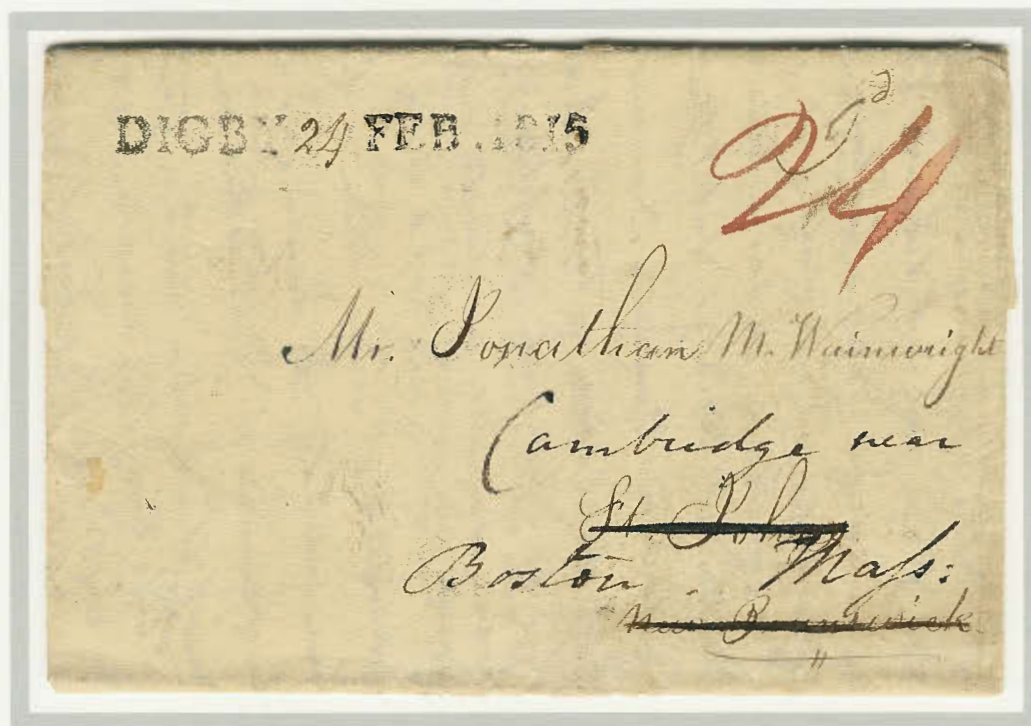 DIGBY 24 FEB. 1815
24
Mr. Jonathan M. Wainwright
Cambridge near
St. John
Boston. Maſs:
New Brunswick
"